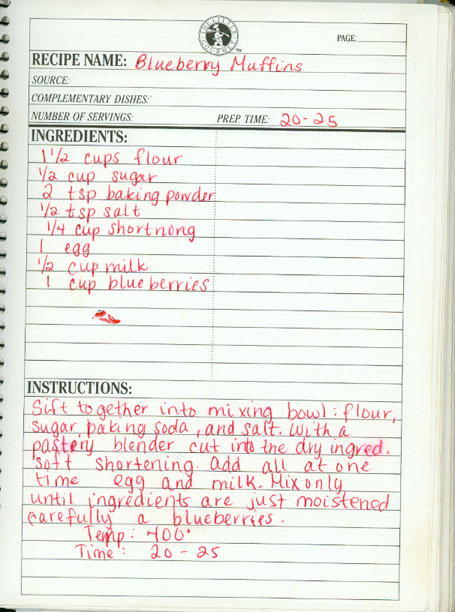 PAGE:
RECIPE NAME: Blueberry Muffins
SOURCE:
COMPLEMENTARY DISHES:
NUMBER OF SERVINGS: PREP. TIME: 20-25
INGREDIENTS:
1 1/2 cups flour
1/2 cup sugar
2 tsp baking powder
1/2 tsp salt
1/4 cup shortnong
1 egg
1/2 cup milk
1 cup blueberries
INSTRUCTIONS:
Sift together into mixing bowl: flour,
sugar baking soda, and salt. With a
pastery blender cut into the dry ingred.
soft shortening. add all at one
time egg and milk. Mix only
until ingredients are just moistened
carefully a blueberries.
Temp: 400°
Time: 20-25